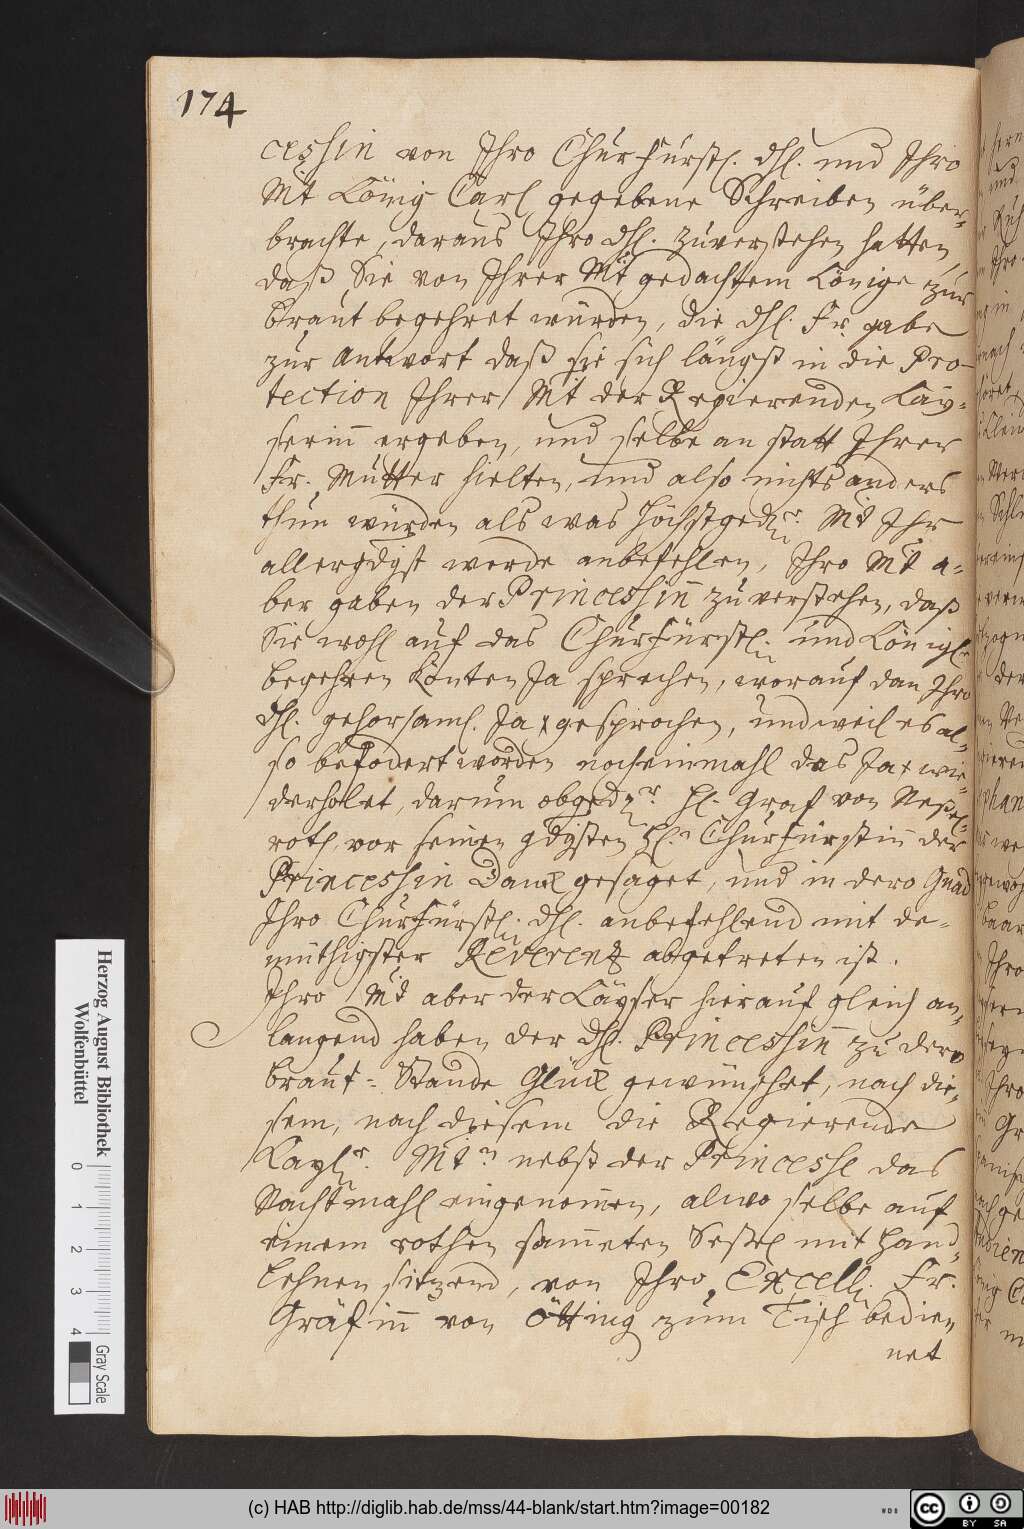 174
cessin von Ihro Churfürstl. dhl. und Ihro
Mt König Carl gegebene Schreiben über-
brachte, daraus Ihro dhl. zuverstehen hatten,
daß Sie von Ihrer Mt gedachtem Könige zur
braut begehret würden, die dhl. Fr. gabe
zur Antwort daß sie sich längst in die Pro-
tection Ihrer Mt der Regierenden Käy-
serin ergeben, und selbe an statt Ihrer
Fr. Mutter hielten, und also nichts anders
thun würden als was höchstgedr. Mt Ihr
allergdgst werde anbefehlen, Ihro Mt a-
ber gaben der Princessin zuverstehen, daß
Sie wohl auf das Churfürstl. und Königl.
begehren könten Ja sprechen, worauf dan Ihro
dhl. gehorsaml. Ja gesprochen, und weil es al-
so befodert worden nocheinmahl das Ja wie-
derholet, darum obgedr. H. Graf von Neßel-
roth, vor seinen gdgsten Churfürstin der
Princessin Danck gesaget, und in dero Gnad
Ihro Churfürstl. dhl. anbefehlend mit de-
müthigster Reverentz abgetreten ist.
Ihro Mt aber der Käyser hierauf gleich an-
langend haben der dhl. Princessin zu dero
braut-Stande Glück gewünschet, nach die-
sem, nach diesem die Regierende
Kayl. Mt nebst der Princesse das
Nachtmahl eingenommen, alwo selbe auf
einem rothen sammeten Seßel mit Hand-
lehnen sitzend, von Ihro Excell. Fr.
Gräfin von Ötting zum Tisch bedie-
net
Herzog August Bibliothek
Wolfenbüttel
0 1 2 3 4
Gray Scale
(c) HAB http://diglib.hab.de/mss/44-blank/start.htm?image=00182
WDB
cc BY SA